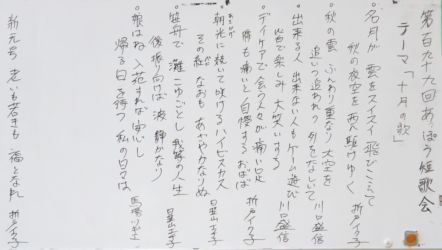 第百九十九回 あっぽう 短歌会
テーマ「十月の歌」
○名月が 雲をスイスイ 飛びこえて
秋の夜空を 駆けゆく 折戸イク子
○秋の雲 ふんわり重なり 大空を
追いつ追われつ 列をなしいて 川口盛信
○出来る人 出来ない人も ゲーム遊び
皆で楽しみ 大笑いする 川口盛信
○デイケアで 会う人々が 痛い足
膝も痛いと 自慢する おばば 折戸イク子
○朝光に 抜いて咲ける ハイビスカス
その紅 なおも あざやかなりぬ
○笹舟で 灘こゆごとし 我等の人生
後振り向けば 波 静かなり
○娘はね 入苑すれば 安心し
帰る日を待つ 私の日々は
新元号 老いも若きも 福となれ 折戸イク子